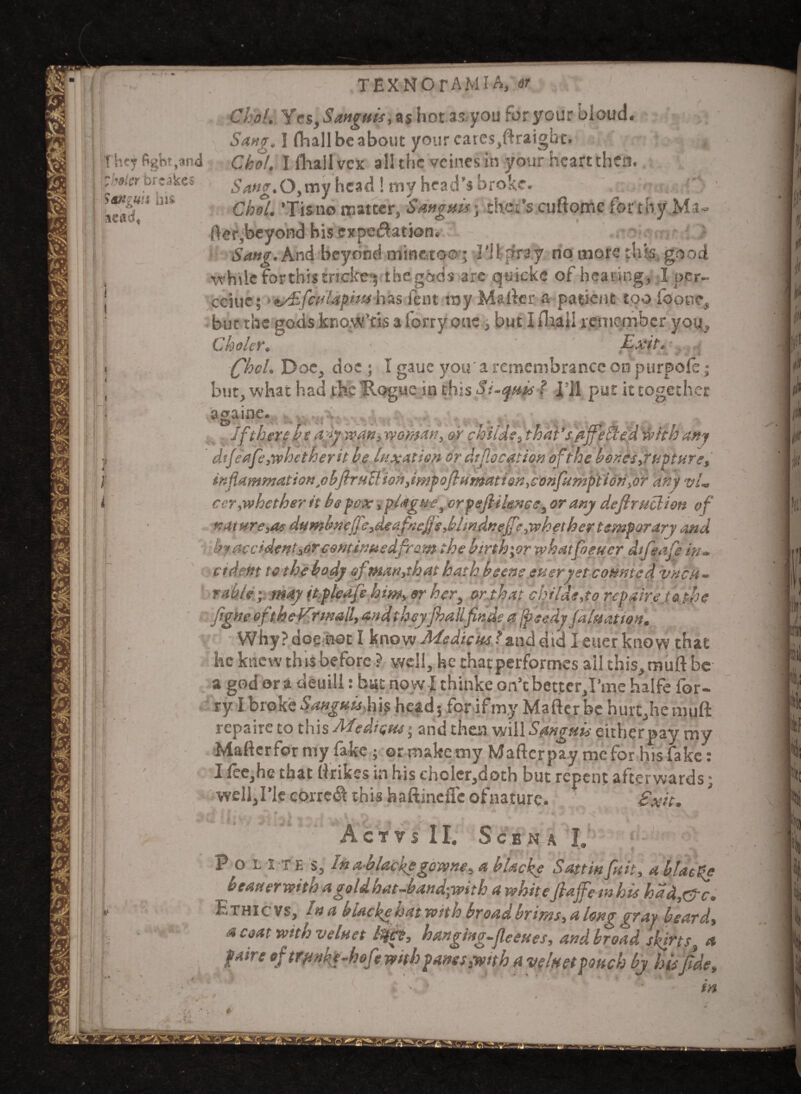 TEXNOΓAMIA, or
Chol. Yes, Sanguis, as hot as you for your bloud.
Sang. I ſhall be about your eares, ſtraight.
They fight, and
Choler breakes
Sanguis his
head,
Chol. I ſhall vex all the veines in your heart then.
Sang. O, my head ! my head's broke.
Chol. 'Tis no matter, Sanguis ; that's cuſtome for thy Ma-
ſter, beyond his expectation.
Sang. And beyond mine too ; I'll pray no more this, good
while for this tricke ; the gods are quicke of hearing, I per-
ceiue ; Æſculapius has ſent my Maſter a patient too ſoone,
but the gods know 'tis a ſorry one , but I ſhall remember you,
Choler. Exit.
Chol. Doe, doe ; I gaue you a remembrance on purpoſe ;
but, what had the Rogue in this Si-quis ? I'll put it together
againe.
If there be any man, woman, or childe, that's affected with any
diſeaſe, whether it be luxation or diſlocation of the bones, rupture,
inflammation, obſtruction, impoſtumation, conſumption, or any vl-
cer, whether it be pox, plague, or peſtilence, or any deſtruction of
nature, as dumbneſſe, deafneſſe, blindneſſe, whether temporary and
by accident, or continued from the birth ; or whatſoeuer diſeaſe in-
cident to the body of man, that hath beene euer yet counted vncu-
rable ; may it pleaſe him, or her, or that childe, to repaire to the
ſigne of the Vrinall, and they ſhall finde a ſpeedy ſaluation.
Why ? doe not I know Medicus ? and did I euer know that
he knew this before ? well, he that performes all this, muſt be
a god or a deuill : but now I thinke on't better, I'me halfe ſor-
ry I broke Sanguis his head ; for if my Maſter be hurt, he muſt
repaire to this Medicus ; and then will Sanguis either pay my
Maſter for my ſake ; or make my Maſter pay me for his ſake :
I ſee, he that ſtrikes in his choler, doth but repent afterwards ;
well, I'le correct this haſtineſſe of nature. Exit.
ACTVS II. SCENA I.
POLITES, In a blacke gowne, a blacke Sattin ſuit, a blacke
beauer with a gold hat-band ; with a white ſtaffe in his hãd, &c.
ETHICVS, In a blacke hat with broad brims, a long gray beard,
a coat with veluet hanging-ſleeues, and broad skirts, a
paire of trunke-hoſe with panes ; with a veluet pouch by his ſide,
in